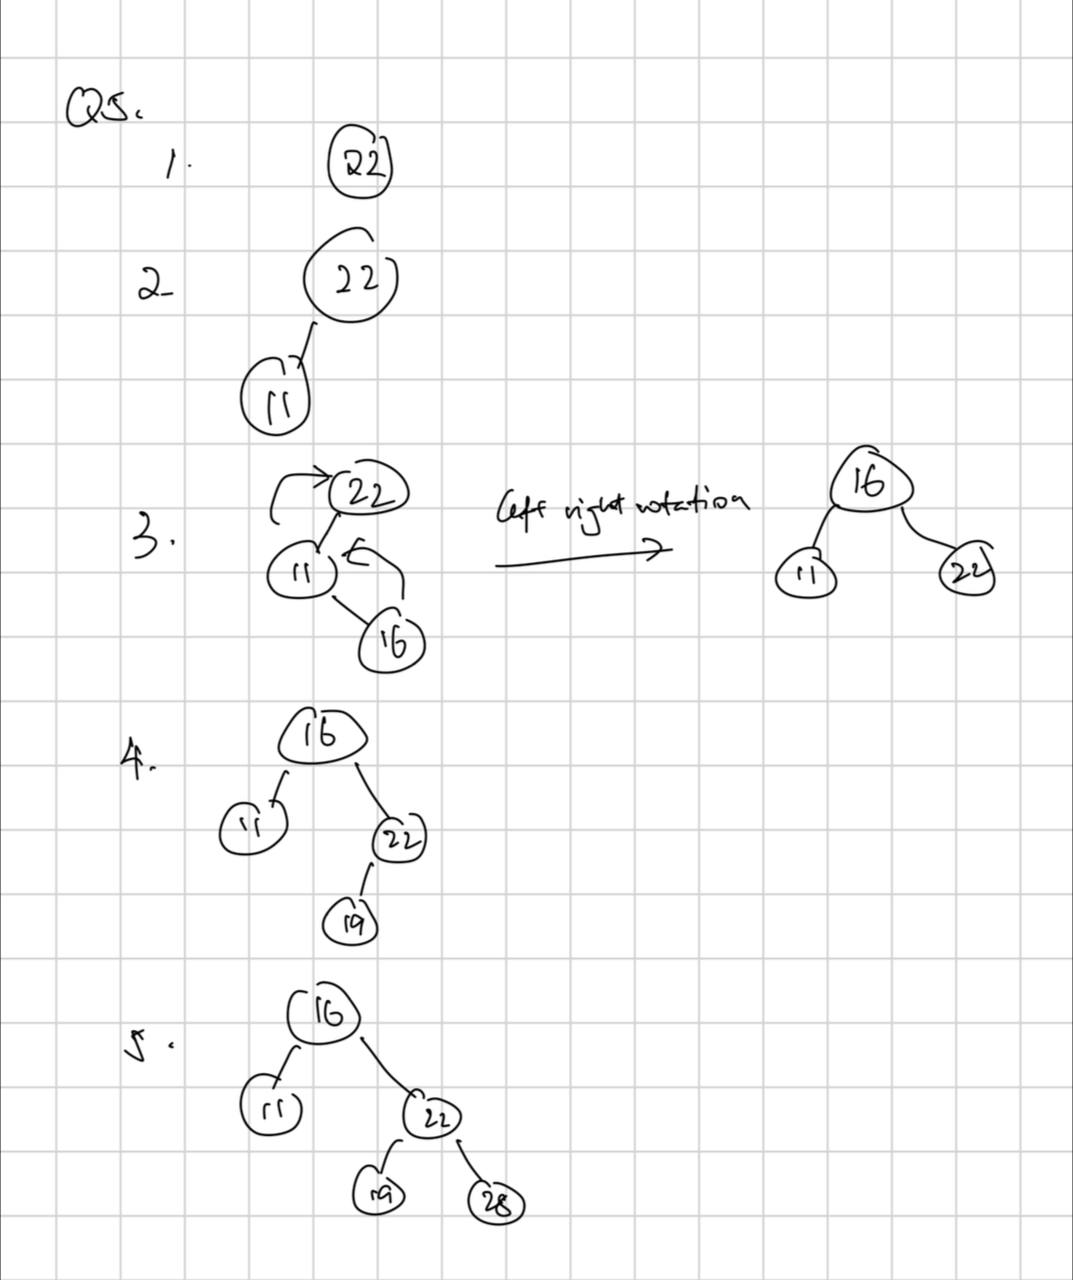 Q5.
1. 22
2 22
11
3. 22 left right rotation 16
11 11 22
16
4. 16
11 22
19
5. 16
11 22
19 28